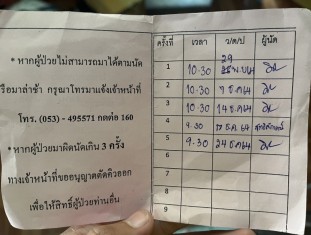 * หากผู้ป่วยไม่สามารถมาได้ตามนัด
รือมาล่าช้า กรุณาโทรมาแจ้งเจ้าหน้าที่
โทร. (053) - 495571 กดต่อ 160
*หากผู้ป่วยมาผิดนัดเกิน 3 ครั้ง
ทางเจ้าหน้าที่ขออนุญาตตัดคิวออก
เพื่อให้สิทธิ์ผู้ป่วยท่านอื่น
ครั้งที่ เวลา ว/ด/ป ผู้นัด
1 10.30 29 พ.ย 64
2 10.30 7 ธ.ค 64
3 10.30 14 ธ.ค 64
4 9.30 17 ธ.ค 64
5 9.30 24 ธ.ค 64
6
7
8
9